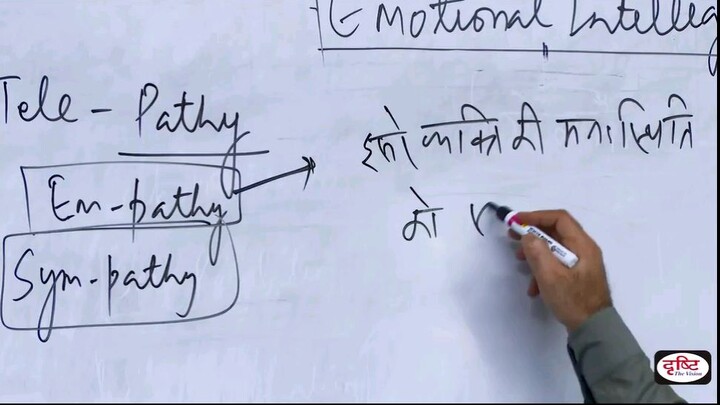 Emotional Intelleg
Tele - Pathy
Em-pathy
Sym-pathy
दूसरे व्यक्ति की मनःस्थिति
को
दृष्टि
The Vision